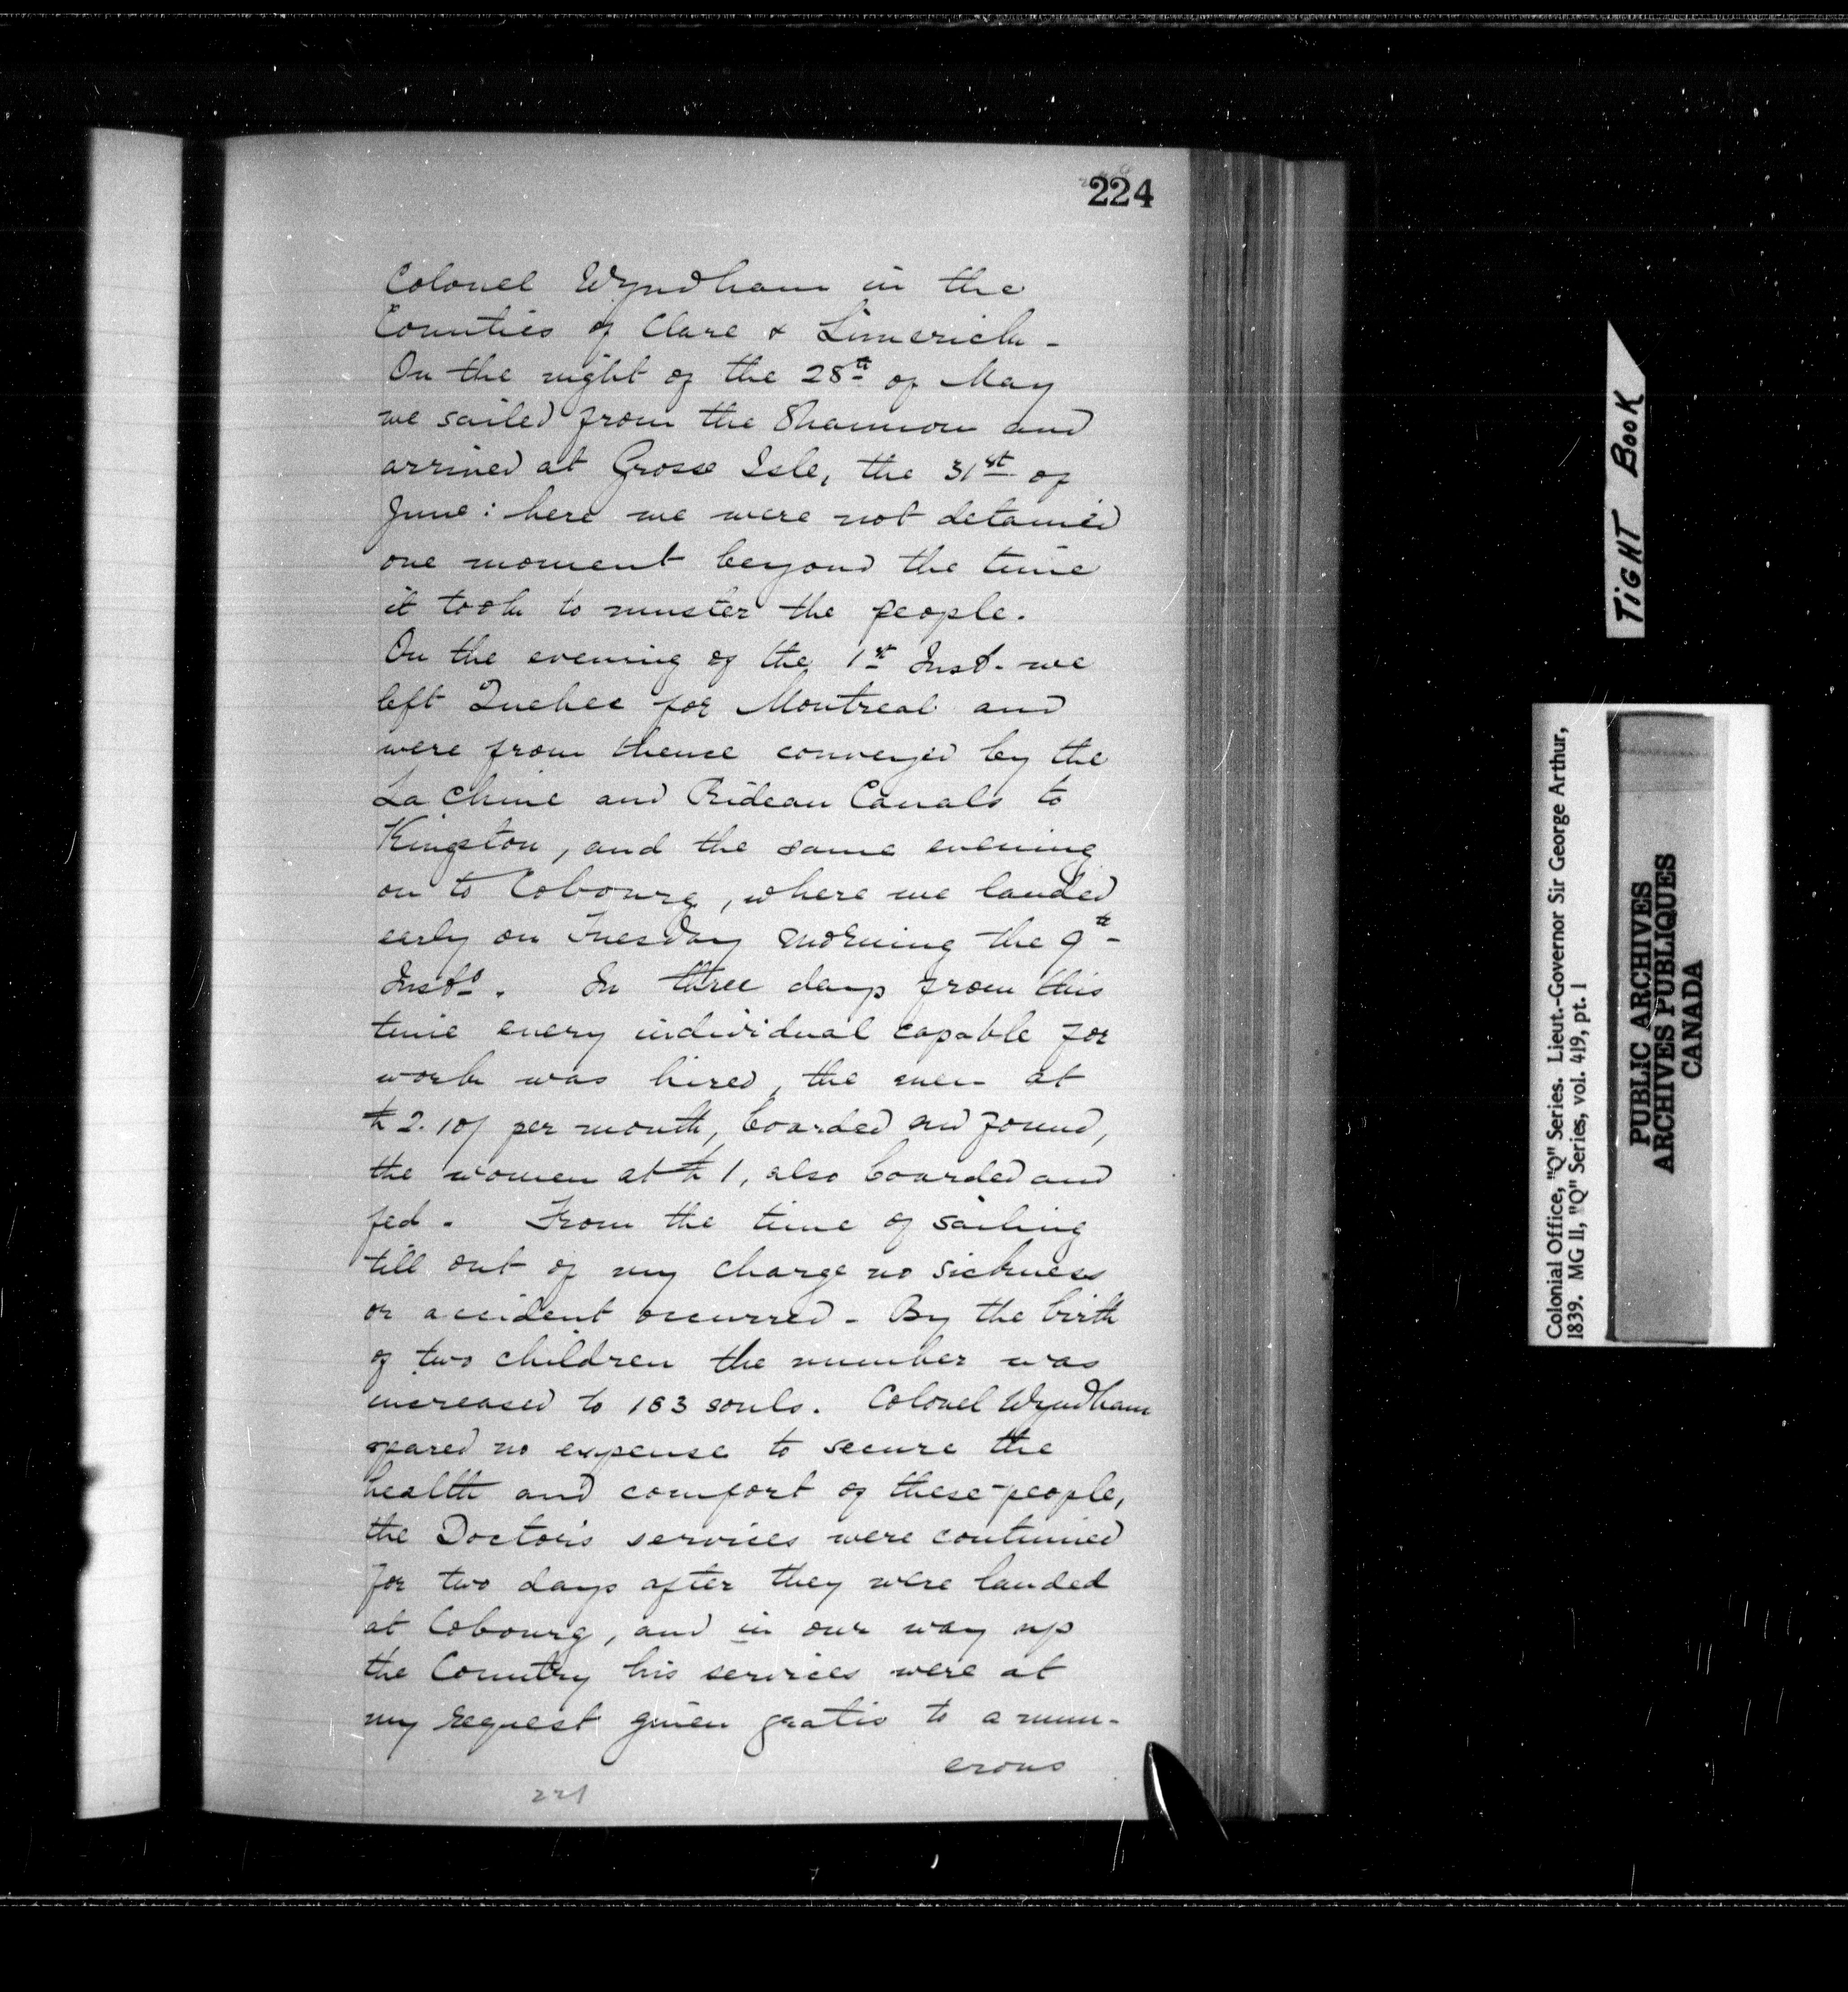 224
Colonel Wyndham in the
Counties of Clare & Limerick -
On the night of the 28th of May
we sailed from the Shannon and
arrived at Grosse Isle, the 31st of
June: here we were not detained
one moment beyond the time
it took to muster the people.
On the evening of the 1st Inst. we
left Quebec for Montreal and
were from thence conveyed by the
La Chine and Rideau Canals to
Kingston, and the same evening
on to Cobourg, where we landed
early on Tuesday morning the 9th -
Insto. In three days from this
time every individual capable for
work was hired, the men at
£2.10/ per month, boarded and found,
the women at £1, also boarded and
fed. From the time of sailing
till out of my charge no sickness
or accident occurred - By the birth
of two children the number was
increased to 183 souls. Colonel Wyndham
spared no expense to secure the
health and comfort of these people,
the Doctor's services were continued
for two days after they were landed
at Cobourg, and in our way up
the Country his services were at
my request given gratis to a num-
erous
221
TIGHT BOOK
Colonial Office, "Q" Series. Lieut.-Governor Sir George Arthur,
1839. MG 11, "Q" Series, vol. 419, pt. 1
PUBLIC ARCHIVES
ARCHIVES PUBLIQUES
CANADA